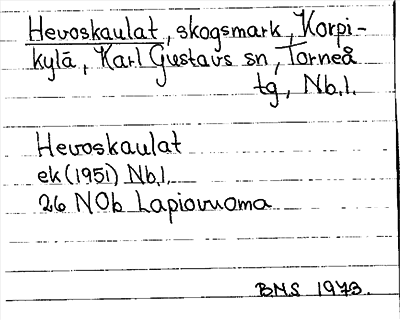 Hevoskaulat, skogsmark, Korpi-
kylä, Karl Gustavs sn, Torneå
tg, Nb.l.
Hevoskaulat
ek (1951) Nb.l.
26 NOb Lapiovuoma
BMS 1973.